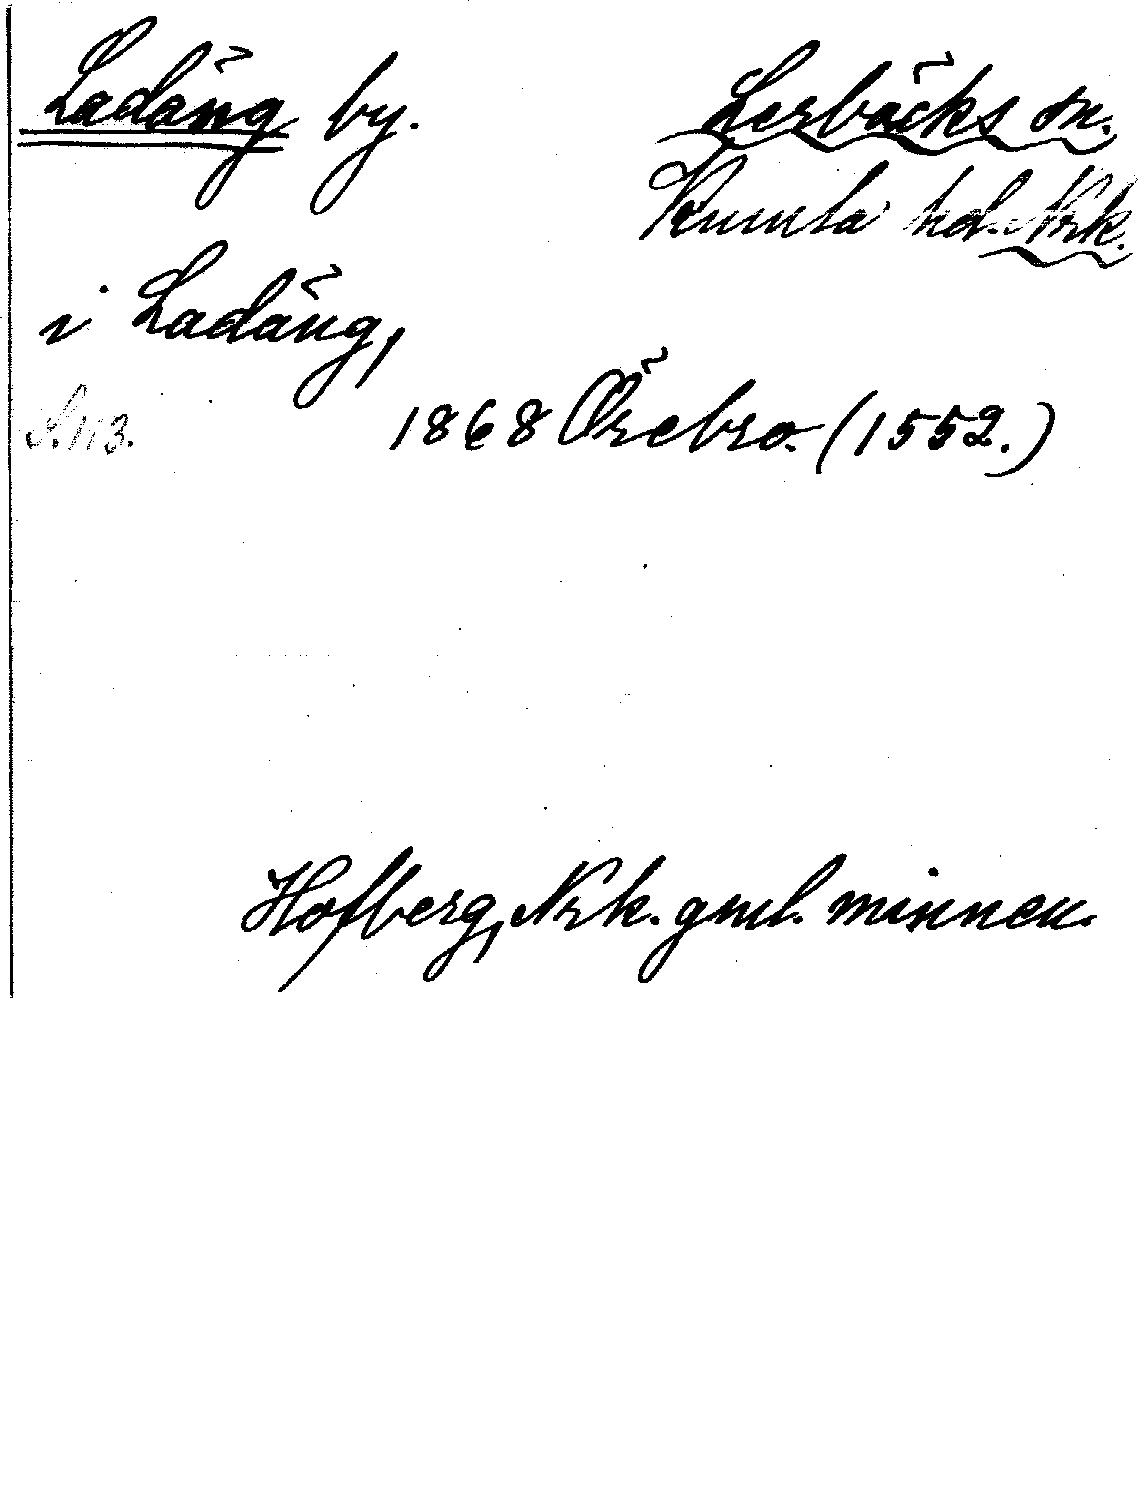 Ladäng by. Lerbäcks sn.
Kumla hd. Nrk.
i Ladäng,
S. 113. 1868 Örebro. (1552.)
Hofberg, Nrk. gml. minnen.